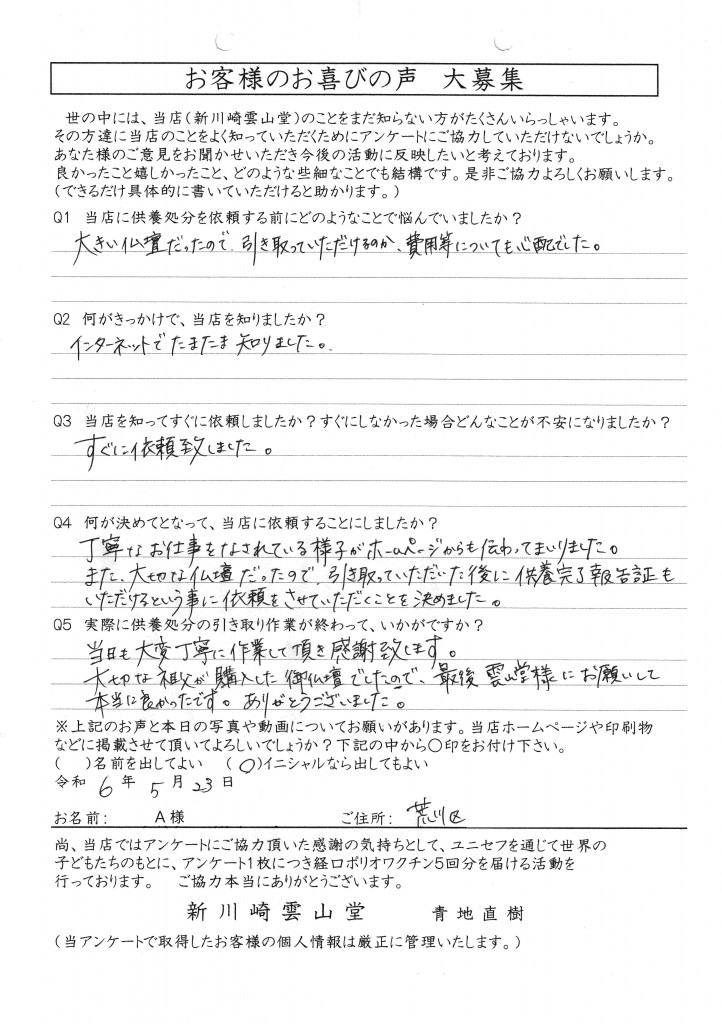 お客様のお喜びの声 大募集
世の中には、当店(新川崎雲山堂)のことをまだ知らない方がたくさんいらっしゃいます。
その方達に当店のことをよく知っていただくためにアンケートにご協力していただけないでしょうか。
あなた様のご意見をお聞かせいただき今後の活動に反映したいと考えております。
良かったこと嬉しかったこと、どのような些細なことでも結構です。是非ご協力よろしくお願いします。
(できるだけ具体的に書いていただけると助かります。)
Q1 当店に供養処分を依頼する前にどのようなことで悩んでいましたか?
大きい仏壇だったので、引き取っていただけるのか、費用等についても心配でした。
Q2 何がきっかけで、当店を知りましたか?
インターネットでたまたま知りました。
Q3 当店を知ってすぐに依頼しましたか?すぐにしなかった場合どんなことが不安になりましたか?
すぐに依頼致しました。
Q4 何が決めてとなって、当店に依頼することにしましたか?
丁寧なお仕事をなされている様子がホームページからも伝わってまいりました。
また、大切な仏壇だったので、引き取っていただいた後に供養完了報告証も
いただけるという事に依頼をさせていただくことを決めました。
Q5 実際に供養処分の引き取り作業が終わって、いかがですか?
当日も大変丁寧に作業して頂き感謝致します。
大切な祖父が購入した御仏壇でしたので、最後雲山堂様にお願いして
本当に良かったです。ありがとうございました。
※上記のお声と本日の写真や動画についてお願いがあります。当店ホームページや印刷物
などに掲載させて頂いてよろしいでしょうか?下記の中から○印をお付け下さい。
( )名前を出してよい (○)イニシャルなら出してもよい
令和 6 年 5 月 23 日
お名前: A様 ご住所: 荒川区
尚、当店ではアンケートにご協力頂いた感謝の気持ちとして、ユニセフを通じて世界の
子どもたちのもとに、アンケート1枚につき経口ポリオワクチン5回分を届ける活動を
行っております。 ご協力本当にありがとうございます。
新川崎雲山堂 青地直樹
(当アンケートで取得したお客様の個人情報は厳正に管理いたします。)